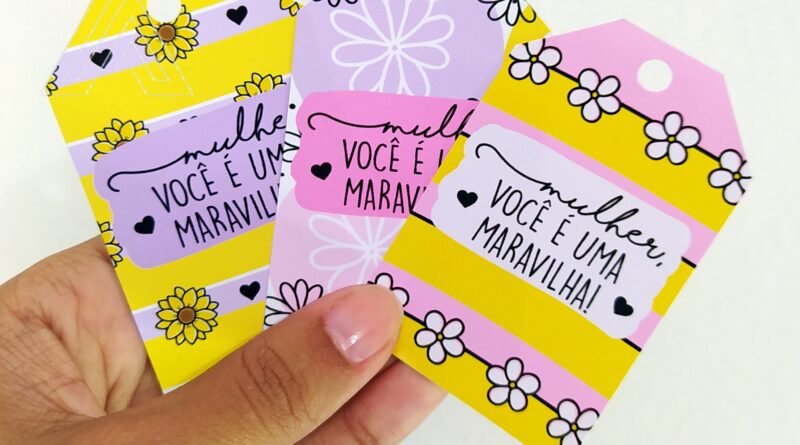 mulher
VOCÊ É UMA
MARAVILH
mulh
VOCÊ É
MARAV
mulher,
VOCÊ É UMA
MARAVILHA!